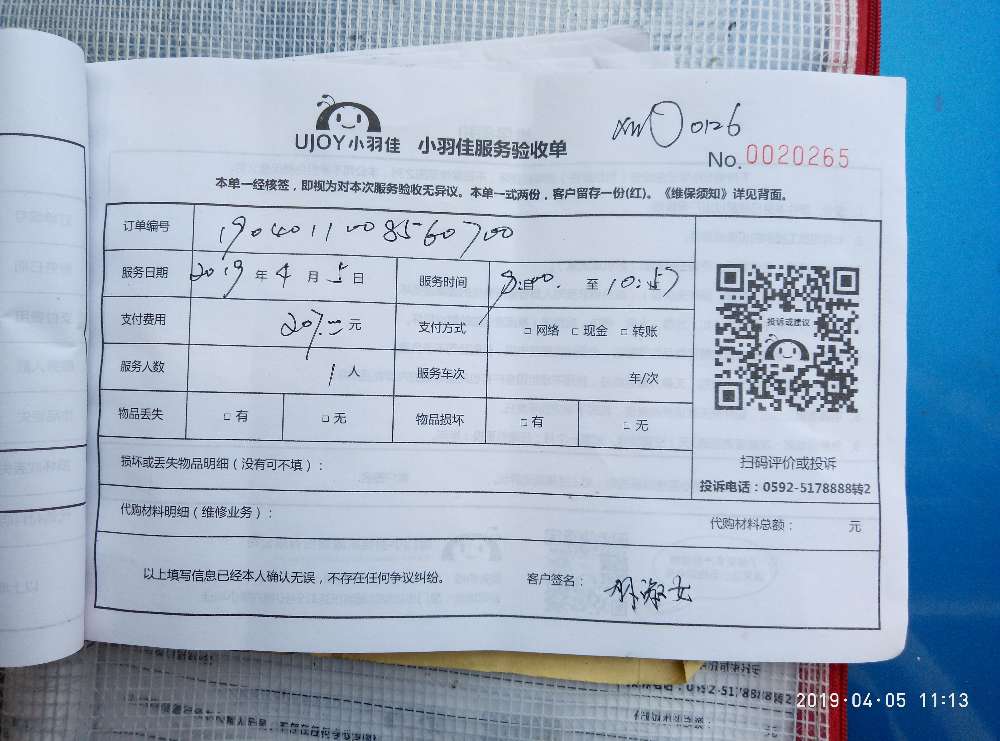 0126
UJOY小羽佳 小羽佳服务验收单
No.0020265
本单一经核签，即视为对本次服务验收无异议。本单一式两份，客户留存一份(红)。《维保须知》详见背面。
订单编号 1904011008560700
服务日期 2019年4月5日 服务时间 8:00 至 10:57
支付费用 207.00元 支付方式 □ 网络 □ 现金 □ 转账
投诉或建议
服务人数 1人 服务车次 车/次
物品丢失 □ 有 □ 无 物品损坏 □ 有 □ 无
损坏或丢失物品明细（没有可不填）：
扫码评价或投诉
投诉电话：0592-5178888转2
代购材料明细（维修业务）： 代购材料总额： 元
以上填写信息已经本人确认无误，不存在任何争议纠纷。 客户签名： 淑女
0592-5178888转2
2019·04·05 11:13